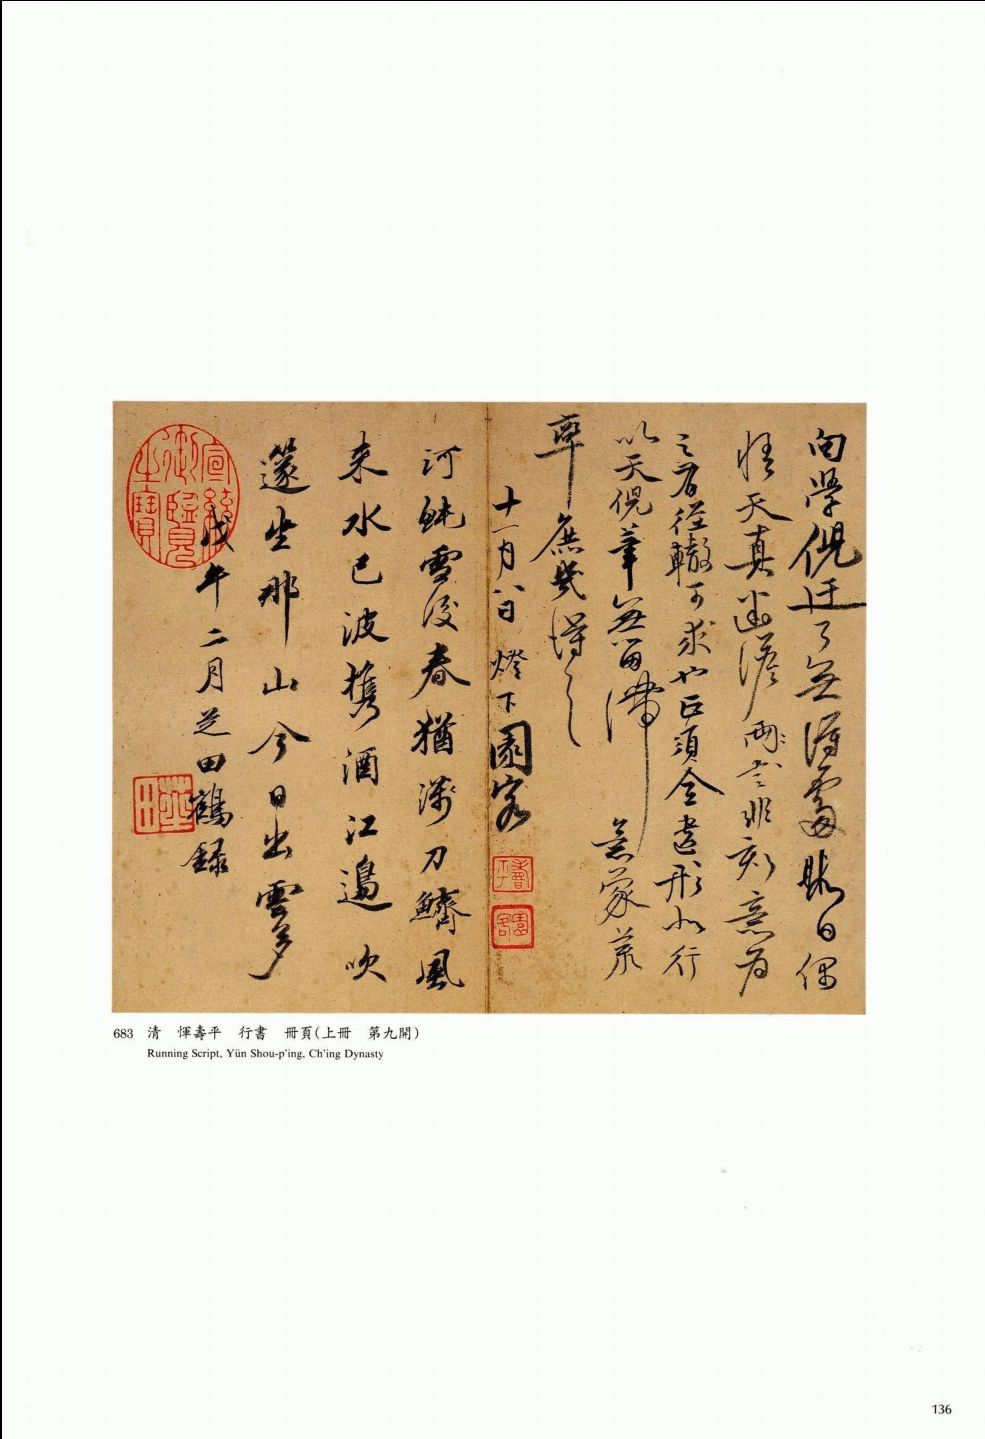 向學倪迂了無得處時日偶
悟天真幽澹兩言非刻意為
之有徑轍可求也正須全遺形似行
以天倪筆無留滯意象荒
率庶幾得之
十一月八日燈下園客
壽平
園客
河魨雪後春猶薄刀鱭風
来水已波携酒江邉吹
篴坐那山今日出雲多
戊午二月芝田鶴録
宣統御覽之寶
683 清 惲壽平 行書 冊頁(上冊 第九開)
Running Script, Yün Shou-p'ing, Ch'ing Dynasty
136